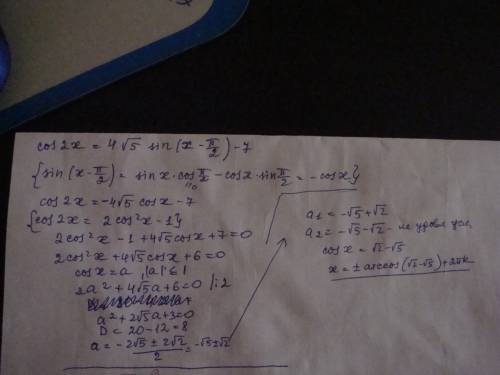 cos2x = 4√5 sin(x - π/2) - 7
{sin(x - π/2) = sinx·cos π/2 - cosx·sin π/2 = -cosx}
"0
cos2x = -4√5 cosx - 7
{cos2x = 2cos²x - 1}
2cos²x - 1 + 4√5 cosx + 7 = 0
2cos²x + 4√5 cosx + 6 = 0
cosx = a, |a| ≤ 1
2a² + 4√5a + 6 = 0 |:2
a² + 2√5a + 3 = 0
D = 20 - 12 = 8
a = (-2√5 ± 2√2)/2 = -√5 ± √2
a₁ = -√5 + √2
a₂ = -√5 - √2 - не удовл усл,
cosx = √2 - √5
x = ± arccos(√2 - √5) + 2πk